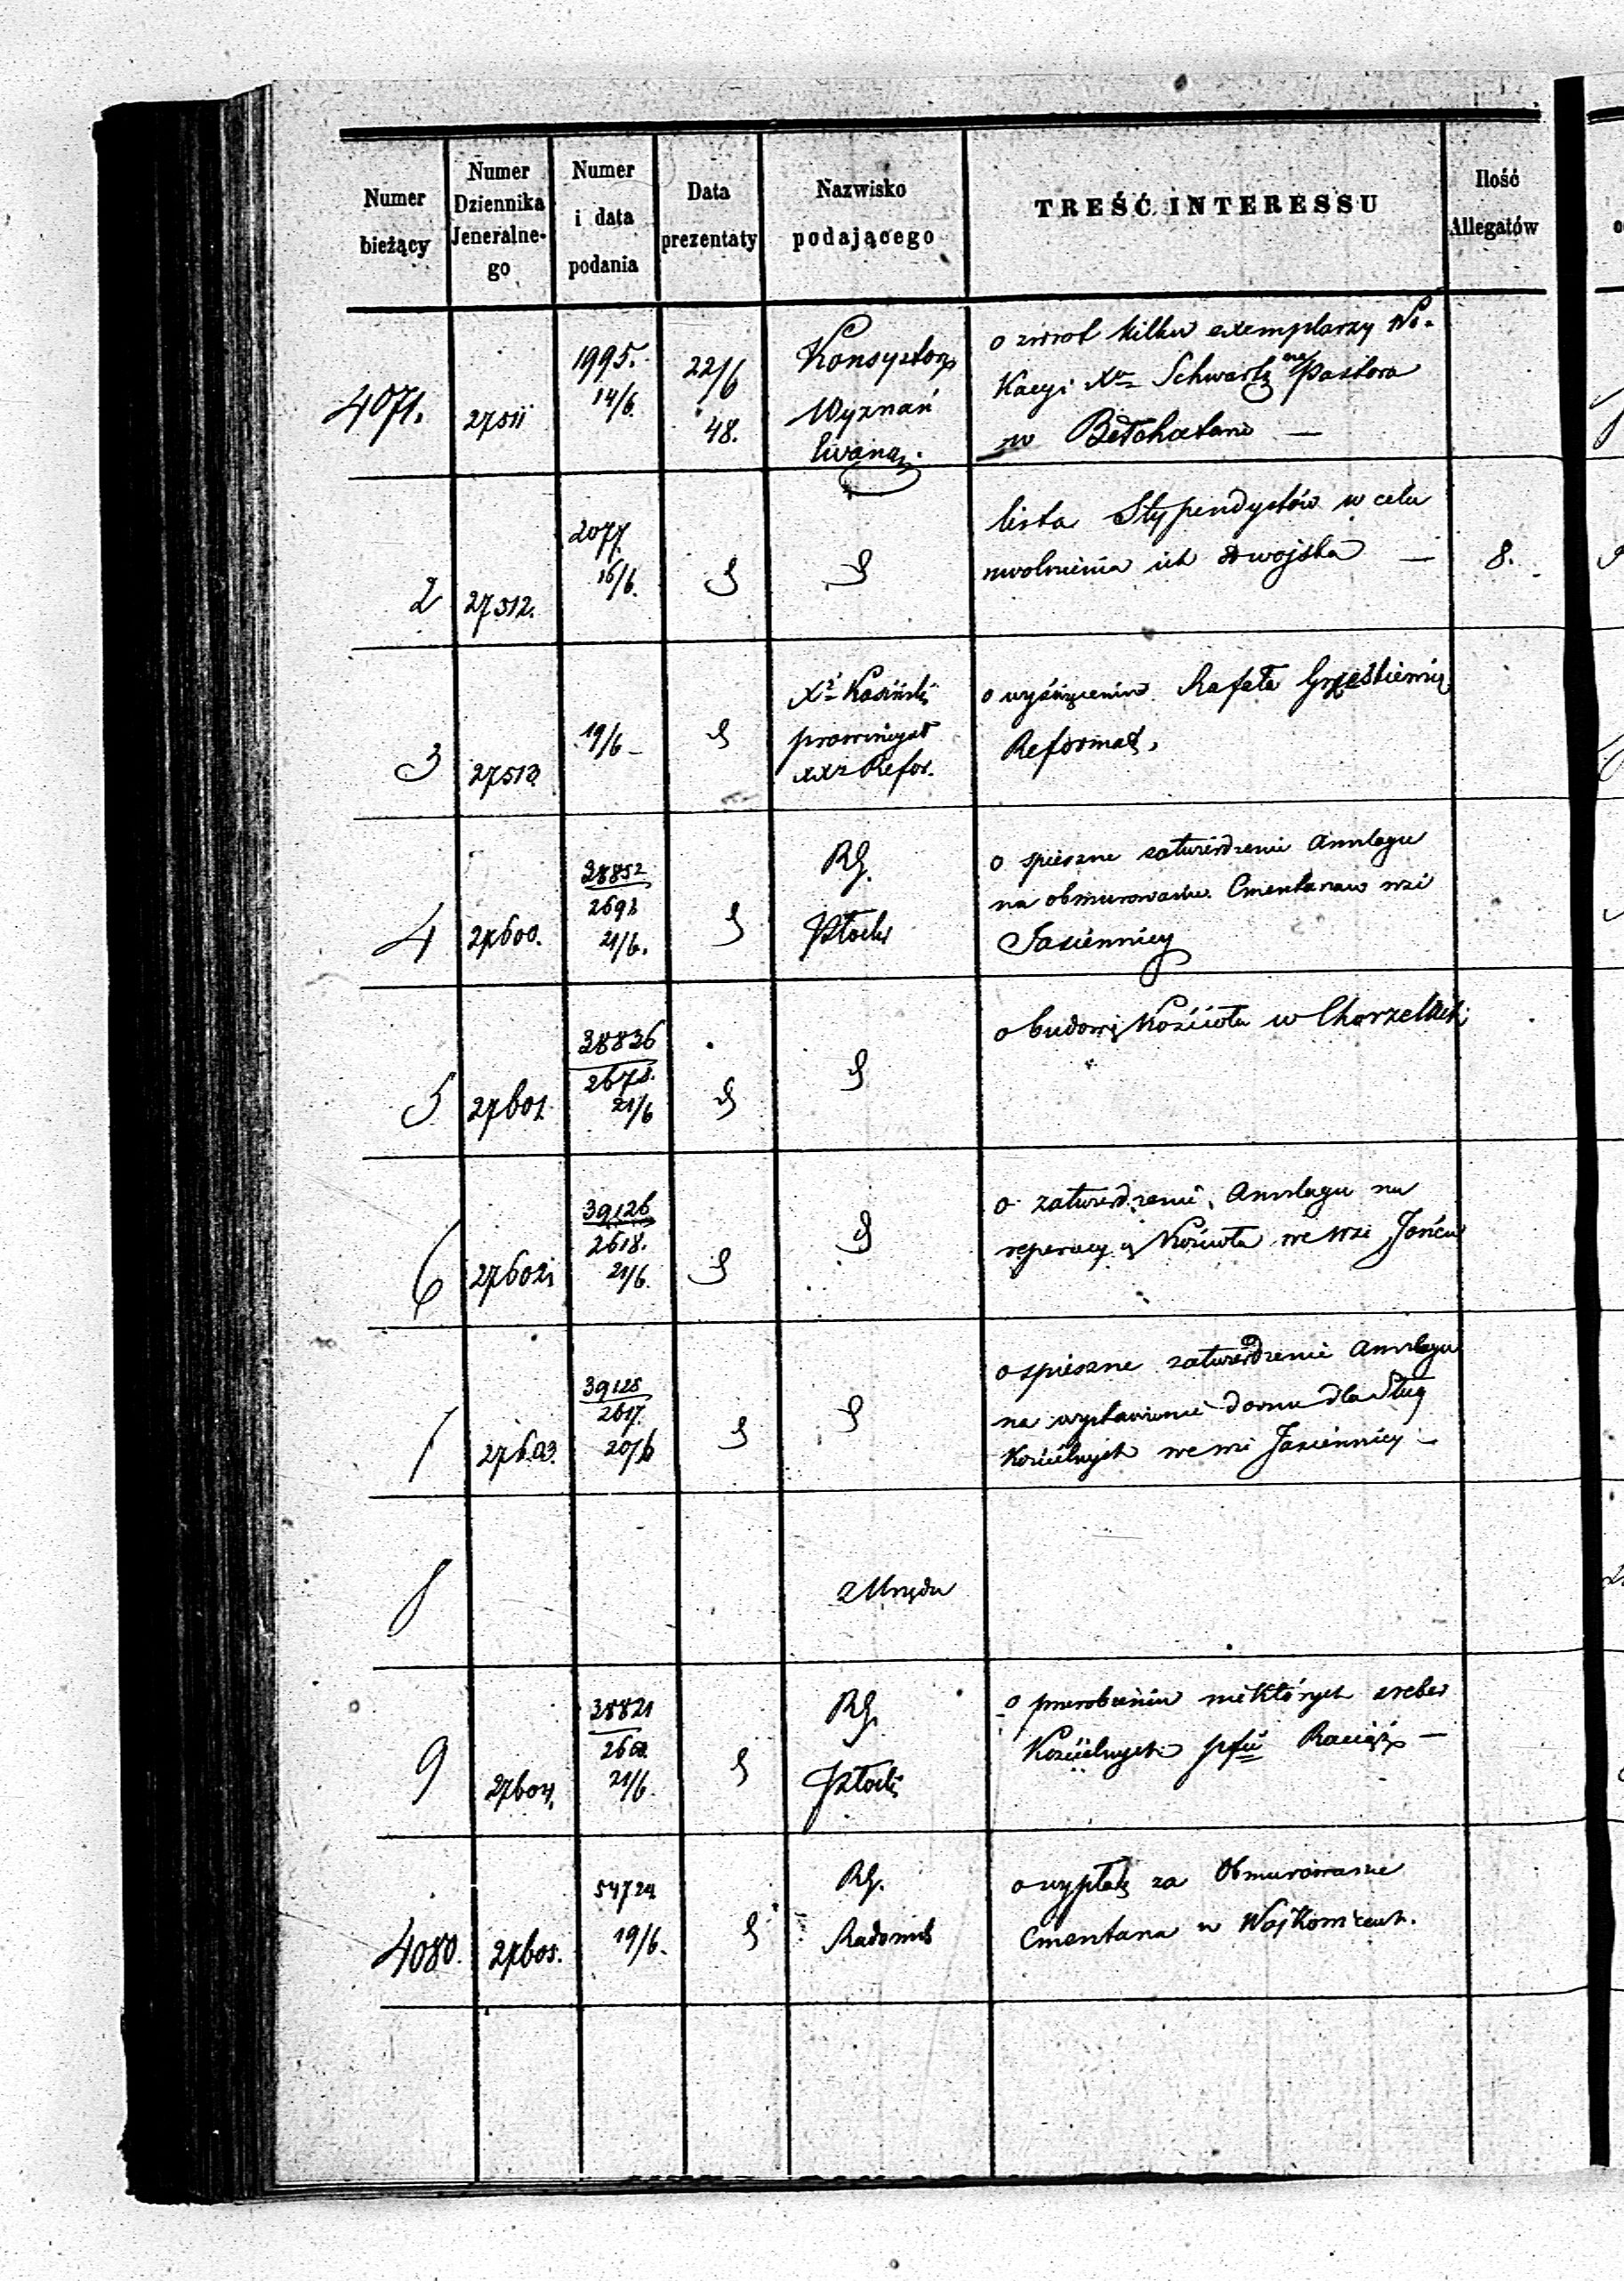 Numer bieżący
Numer Dziennika Jeneralne-go
Numer i data podania
Data prezentaty
Nazwisko podającego
TREŚĆ INTERESSU
Ilość Allegatów
4071. 27511 1995. 14/6. 22/6 48.
Konsystorz
Wyznań
Ewang.
o zwrot kilku exemplarzy Wo-
kacyi Xa Schwartz na Pastora
w Bełchatowie —
2 27512. 2077. 16/6.
lista Stypendystów w celu
uwolnienia ich od wojska — 8.
3 27513 19/6 -
Xz Kosiński
prowincyał
xxz Refor.
o wyświęceniu Rafała
Reformat,
4 27600. 38852 2692 21/6.
RG.
Płocki
o spieszne zatwierdzenie Anszlagu
na obmurowanie Cmentarza wsi
Jasiennicy
5 27601. 38836 2678. 21/6
o budowę Kościoła w Chorzelach
6 27602 39126 2618. 21/6.
o zatwierdzenie Anszlagu na
reperacyą Kościoła we wsi Jońcu
7 27603. 39125 2617. 20/6
o spieszne zatwierdzenie Anszlagu
na wystawienie domu dla Sług
Kościelnych we wsi Jasiennicy —
8
z Urzędu
9 27604. 38821 21/6.
RG.
Płocki
o przerobieniu niektórych sreber
Kościelnych pfii Raciąż —
4080. 27605. 54724 19/6.
RG.
Radoms
o wypłatę za Obmurowanie
Cmentarza w Wojkowicach.